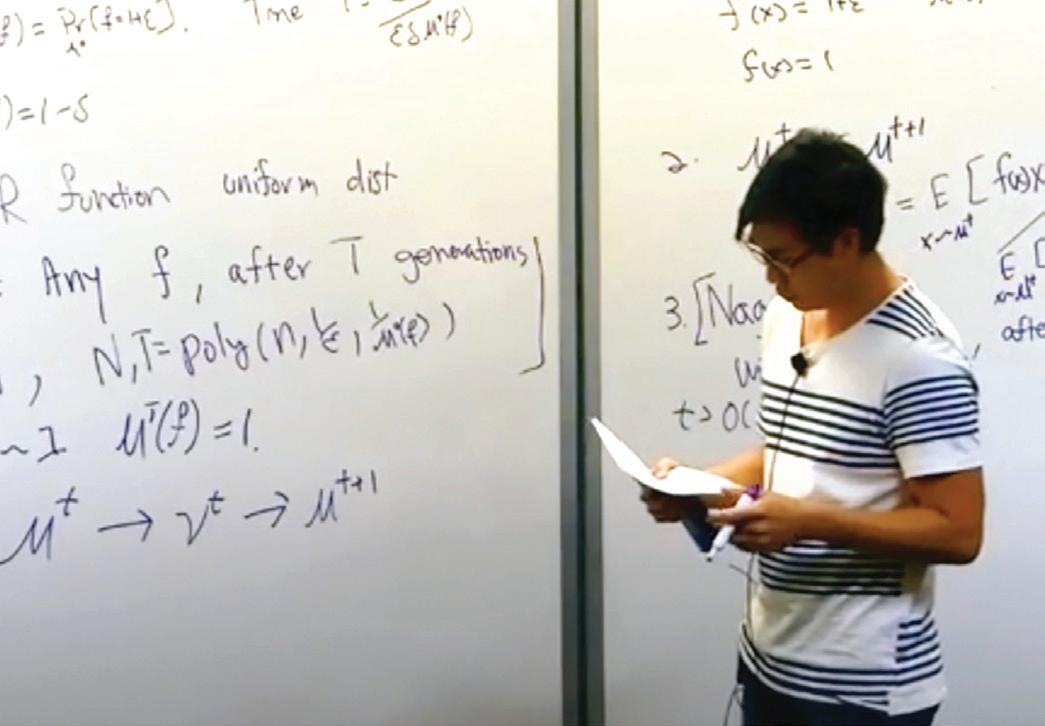 f) = Pr[f=1+ε]. Time
εδμ°(f)
) = 1-δ
R function uniform dist
: Any f, after T generations
, N,T = poly(n, 1/ε, 1/μ°(f))
~ 1 μᵀ(f) = 1.
μᵗ → νᵗ → μᵗ⁺¹
f(x) = 1+ε
f(x) = 1
2. μᵗ μᵗ⁺¹
= E [f(x)x
x~μᵗ
E [
x~μᵗ
3. [
, afte
t > O(